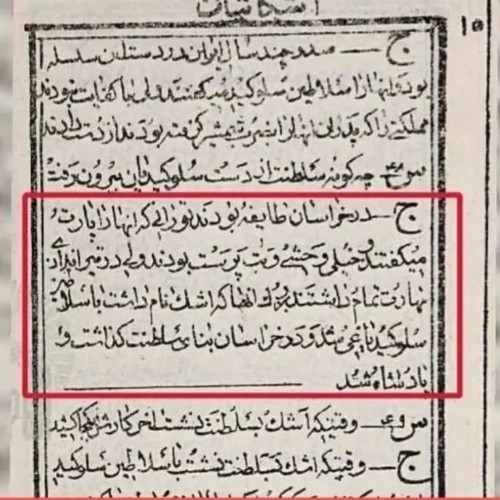 اشکانیان
۱۵
ج — صد و چند سال ایران در دست این سلسله
بود و اینها را سلاطین سلوکید میگفتند ولی با کفایت نبودند
مملکتی را که پدران آنها بضرب شمشیر گرفته بودند از دست دادند
س چه گونه سلطنت از دست سلوکیدیان بیرون رفت
ج — در خراسان طایفه بودند تورانی که آنها را پارت
میگفتند و خیلی وحشی و بت پرست بودند ولی در تیراندازی
مهارت تمام داشتند بزرك آنها که اشك نام داشت با سلاطین
سلوکید یاغی شد و در خراسان بنای سلطنت گذاشت و
پادشاه شد —
س وقتیکه اشك بسلطنت نشست آخر کارش بکجا کشید
ج — وقتیکه اشك بسلطنت نشست با سلاطین سلوکید